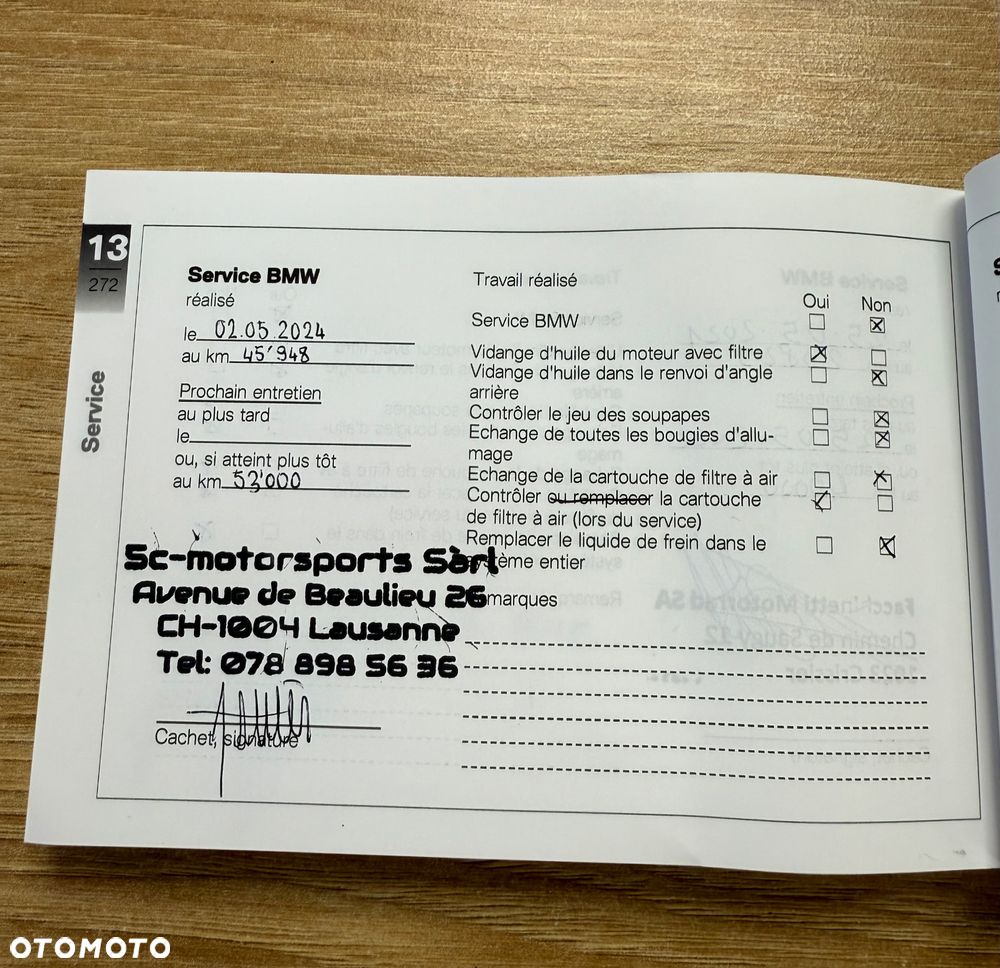 13
272
Service
Service BMW
réalisé
le 02.05.2024
au km 45'948
Prochain entretien
au plus tard
le
ou, si atteint plus tôt
au km 53'000
Sc-motorsports Sàrl
Avenue de Beaulieu 26
CH-1004 Lausanne
Tel: 078 898 56 36
Cachet, signature
Travail réalisé
Oui Non
Service BMW
Vidange d'huile du moteur avec filtre
Vidange d'huile dans le renvoi d'angle
arrière
Contrôler le jeu des soupapes
Echange de toutes les bougies d'allu-
mage
Echange de la cartouche de filtre à air
Contrôler ou remplacer la cartouche
de filtre à air (lors du service)
Remplacer le liquide de frein dans le
tème entier
marques
OTOMOTO